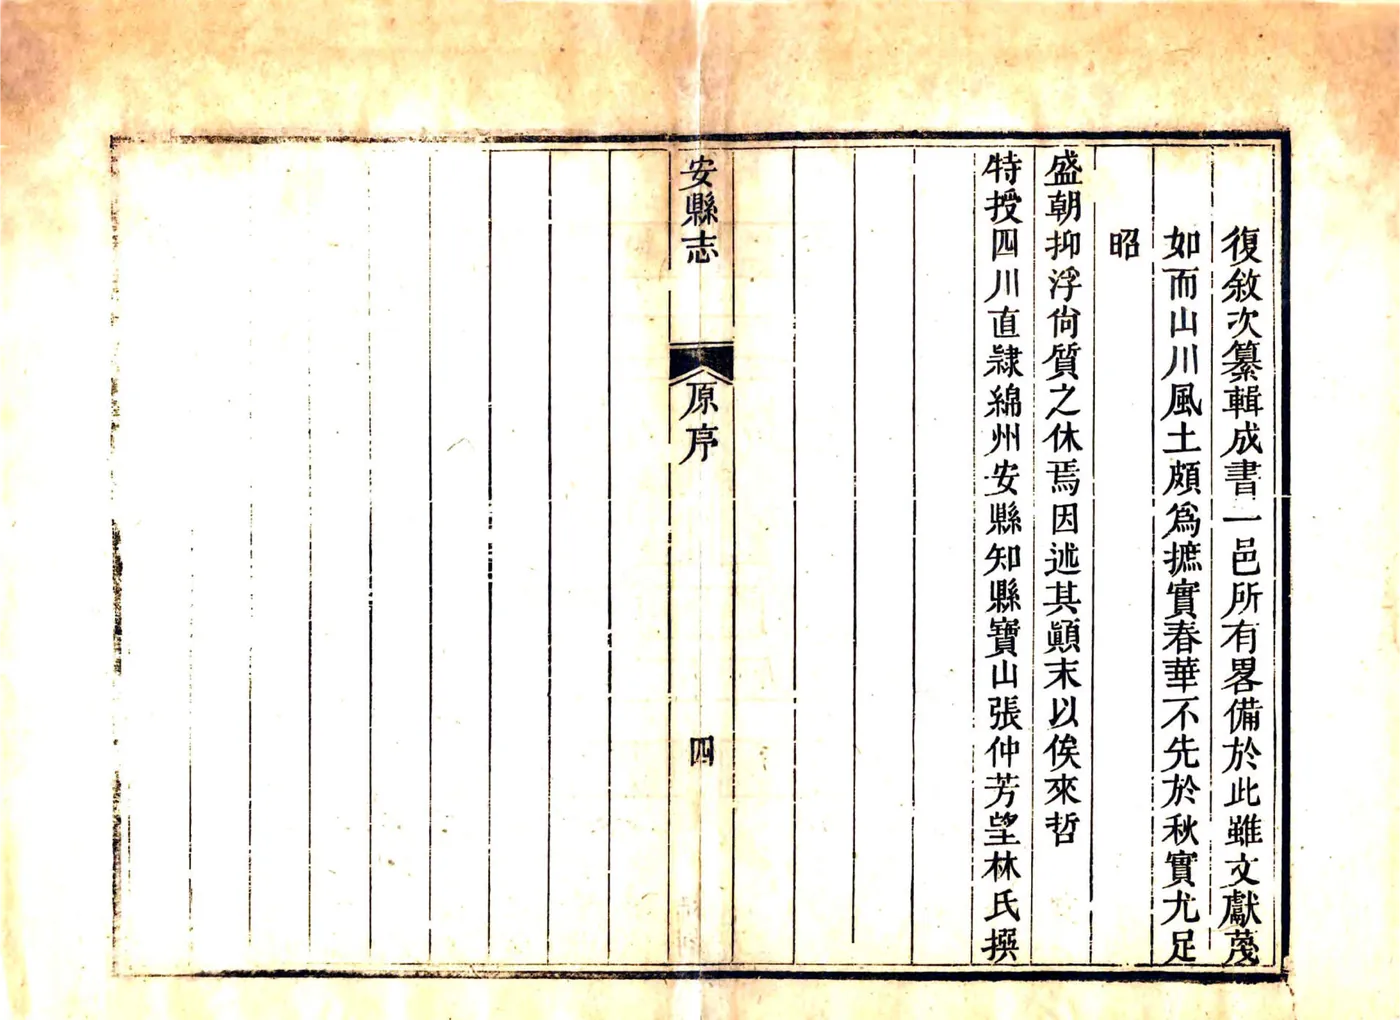 復敘次纂輯成書一邑所有畧備於此雖文獻蔑
如而山川風土頗爲摭實春華不先於秋實尤足
昭
盛朝抑浮尙質之休焉因述其顚末以俟來哲
特授四川直隸綿州安縣知縣寶山張仲芳望林氏撰
安縣志
原序
四